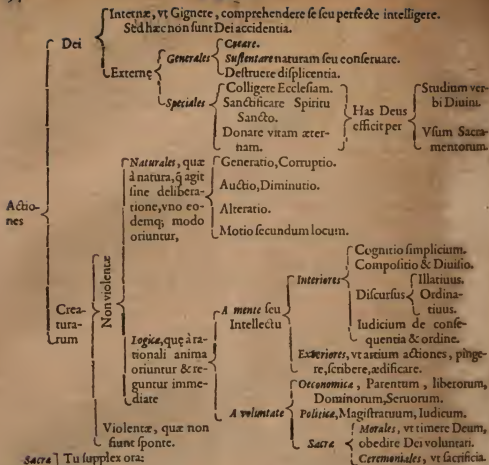 Internæ, vt Gignere, comprehendere se seu perfecte intelligere.
Sed hæc non sunt Dei accidentia.
Dei
Externę
Generales
Creare.
Sustentare naturam seu conseruare.
Destruere displicentia.
Speciales
Colligere Ecclesiam.
Sanctificare Spiritu
Sancto.
Donare vitam æter-
nam.
Has Deus
efficit per
Studium ver-
bi Diuini.
Vsum Sacra-
mentorum.
Actio-
nes
Creatu-
rarum
Non violentæ
Naturales, quæ
à natura, q̃ agit
sine delibera-
tione, vno eo-
demq; modo
oriuntur,
Generatio, Corruptio.
Auctio, Diminutio.
Alteratio.
Motio secundum locum.
Logicæ, quę à ra-
tionali anima
oriuntur & re-
guntur imme-
diate
A mente seu
Intellectu
Interiores
Cognitio simplicium.
Compositio & Diuisio.
Discursus
Illatiuus.
Ordina-
tiuus.
Iudicium de conse-
quentia & ordine.
Exteriores, vt artium actiones, pinge-
re, scribere, ædificare.
A voluntate
Oeconomicæ, Parentum, liberorum,
Dominorum, Seruorum.
Politicæ, Magistratuum, Iudicum.
Sacræ
Morales, vt timere Deum,
obedire Dei voluntati.
Ceremoniales, vt sacrificia.
Violentæ, quæ non
fiunt sponte.
Sacra
Tu supplex ora: